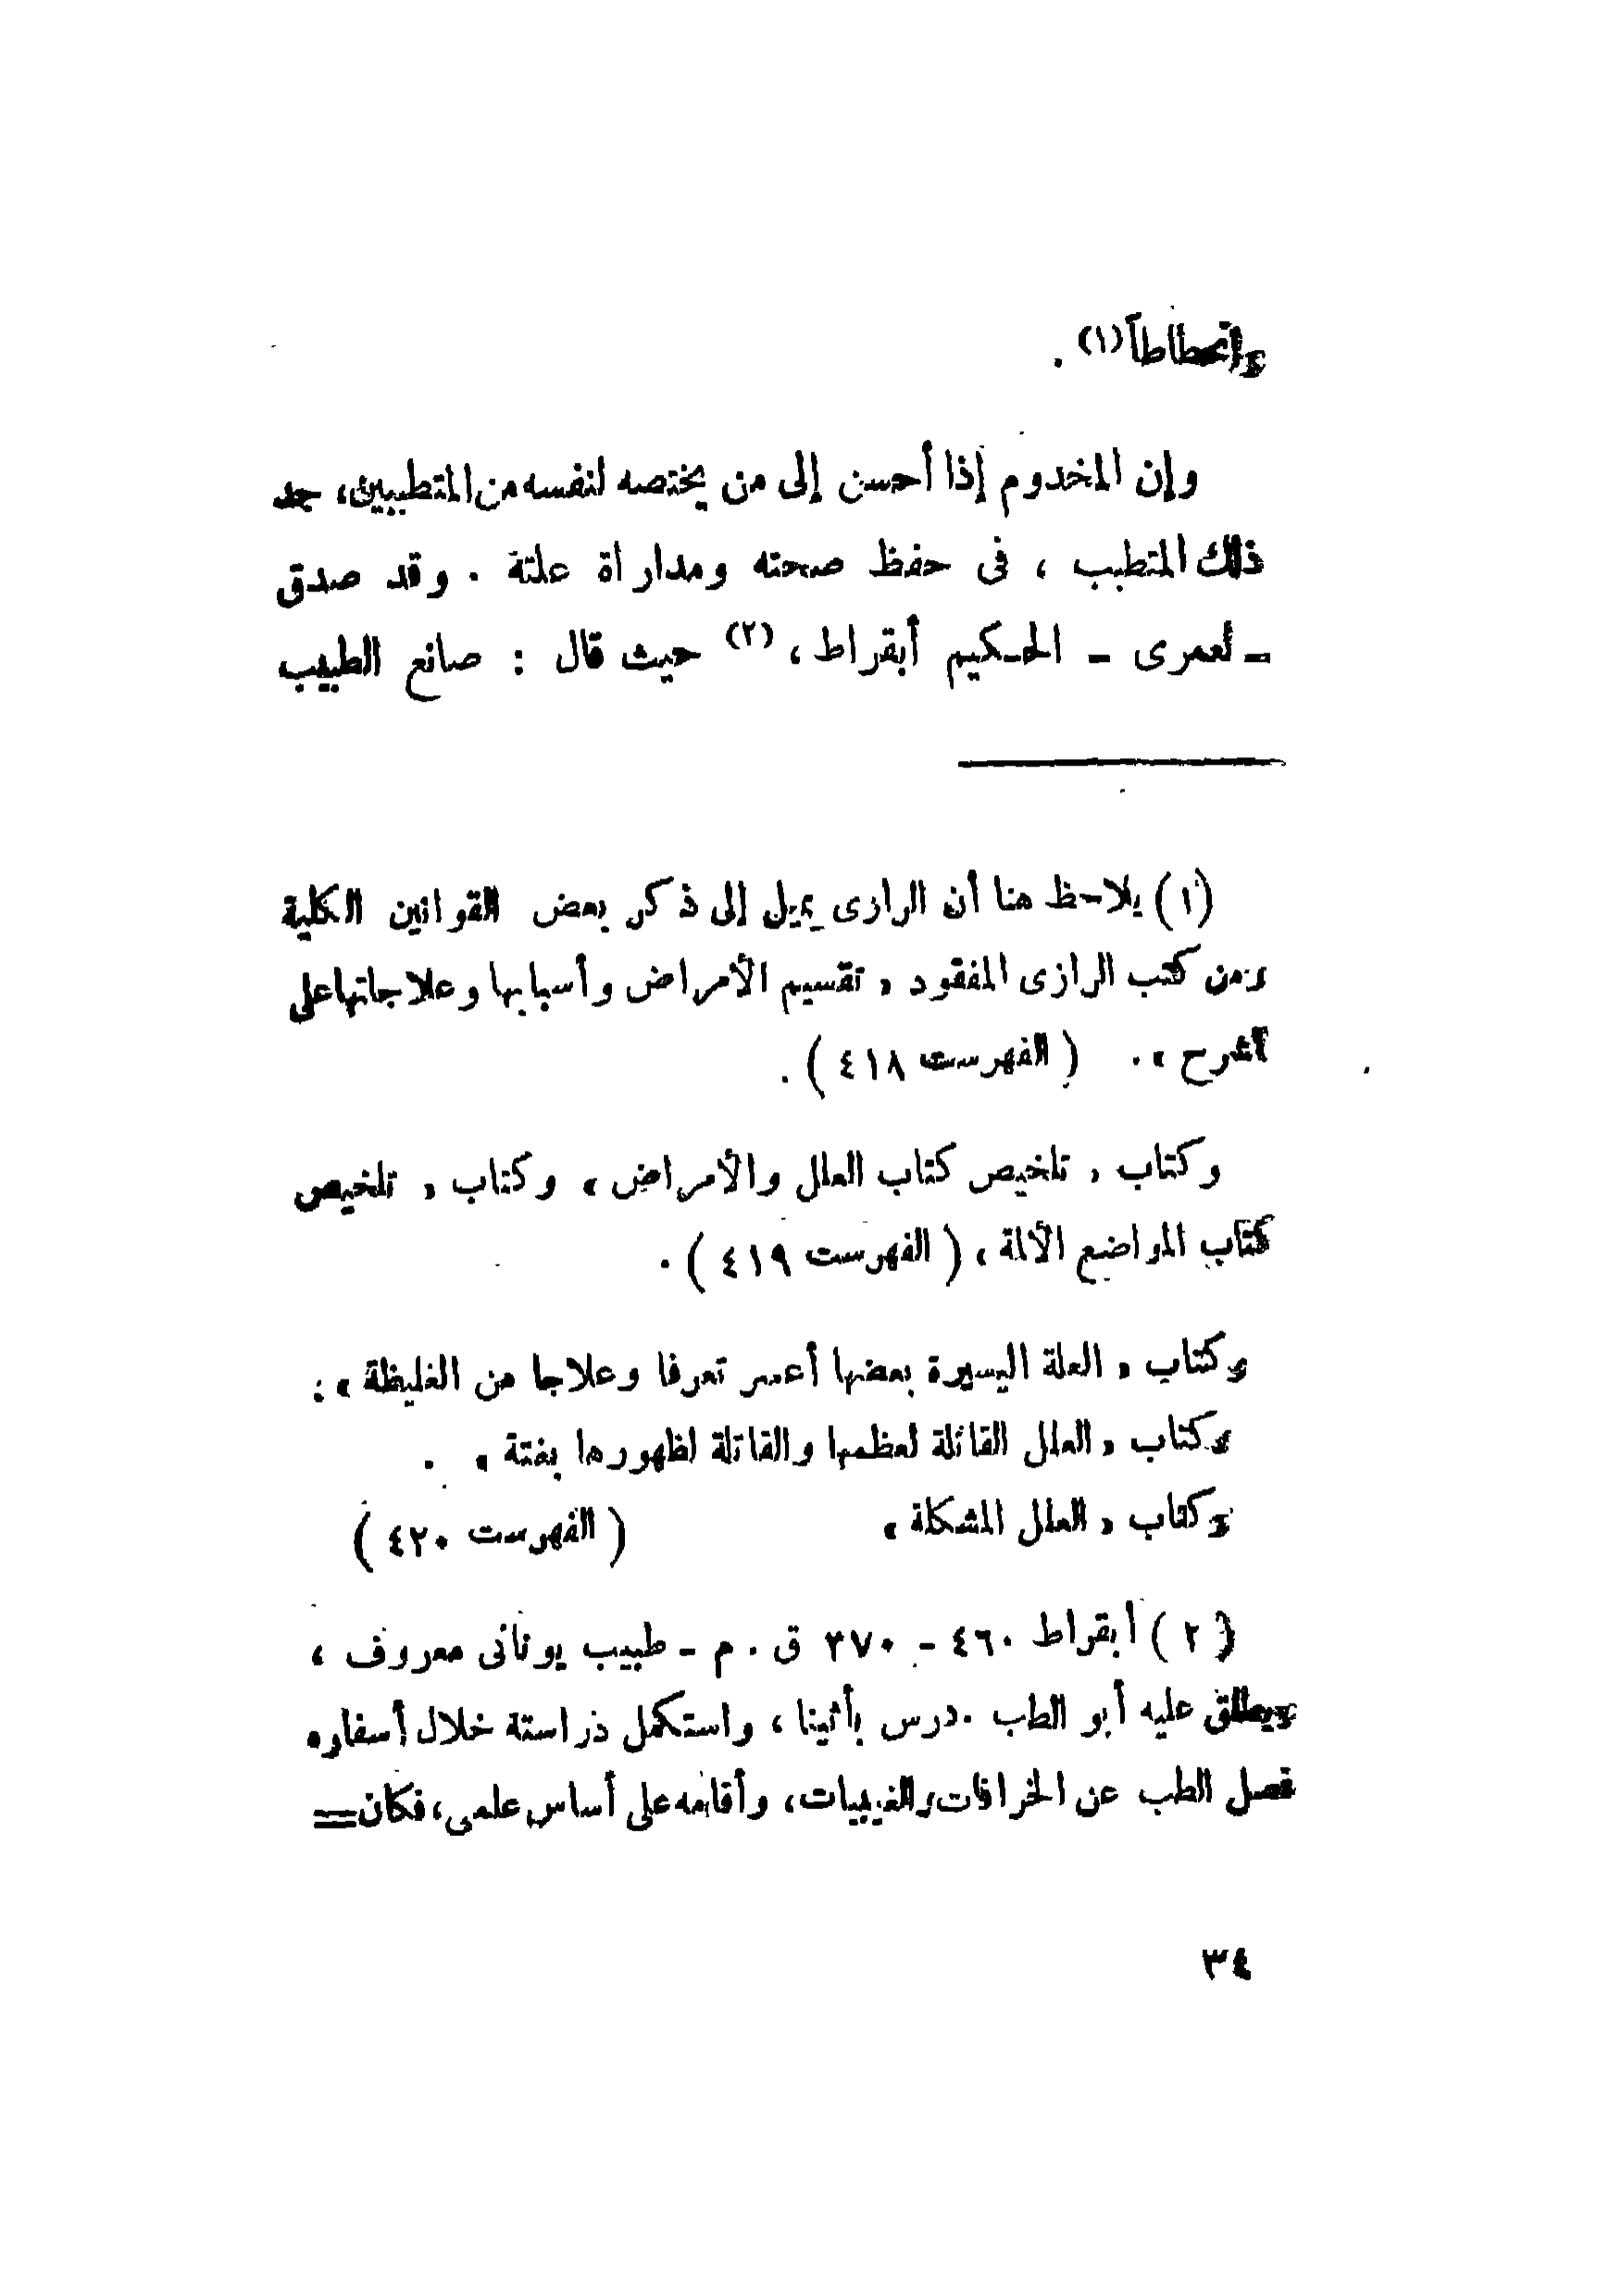 وإنحطاطاً (١) .
وإن المخدوم إذا أحسن إلى من يختصه لنفسه من المتطببين، جد
ذلك المتطبب ، فى حفظ صحته ومداراة علتة . وقد صدق
ـ لعمرى ـ الحكيم أبقراط، (٢) حيث قال : صانع الطبيب
(١) يلاحظ هنا أن الرازى يميل إلى ذكر بعض القوانين الكلية
ومن كتب الرازى المفقود « تقسيم الأمراض وأسبابها وعلاجاتها على
الشرح » . ( الفهرست ٤١٨ ) .
وكتاب « تلخيص كتاب العلل والأمراض » وكتاب « تلخيص
كتاب المواضيع الألمة » ( الفهرست ٤١٩ ) .
وكتاب « العلة اليسيرة بعضها أعسر تعرفا وعلاجا من الغليظة » :
وكتاب « العلل القاتلة لعظمها والقاتلة لظهورها بغتة » .
وكتاب « العلل المشكلة » ( الفهرست ٤٢٠ )
( ٢ ) أبقراط ٤٦٠ - ٣٧٠ ق . م - طبيب يونانى معروف ،
ويطلق عليه أبو الطب . درس بأثينا ، واستكمل دراستة خلال أسفاره
فصل الطب عن الخرافات والغيبيات، وأقامه على أساس علمى، فكان =
٣٤